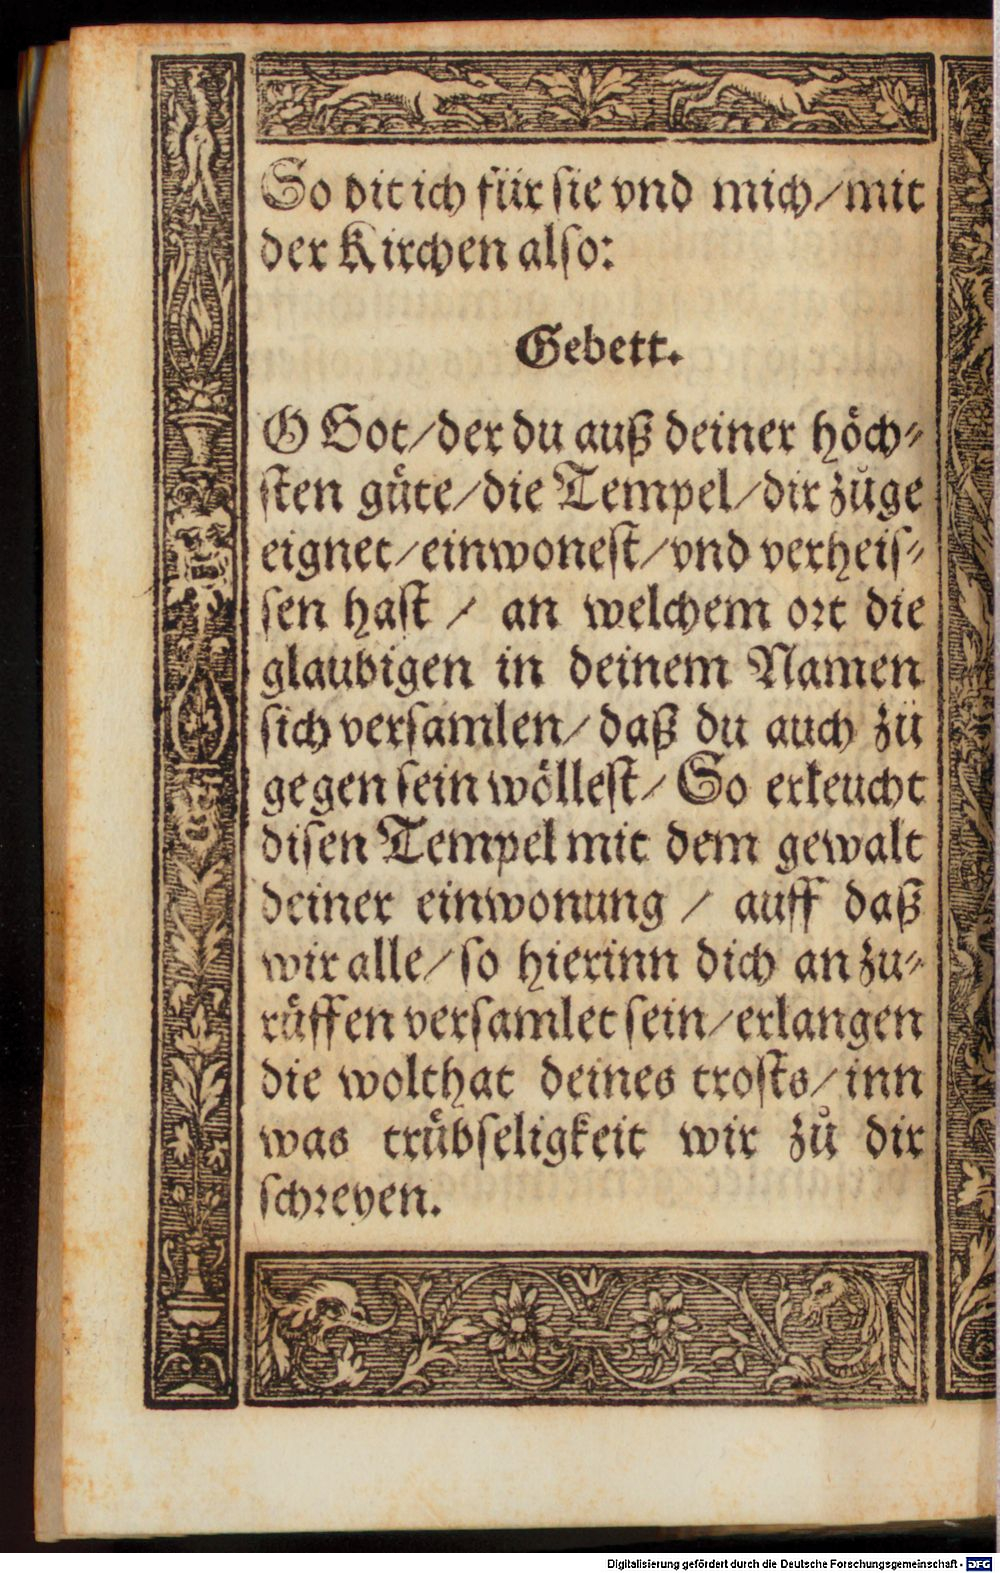 So bit ich für sie vnd mich/mit
der Kirchen also:
Gebett.
O Got/der du auß deiner höch-
sten guͤte/die Tempel/dir zůge
eignet/einwonest/vnd verheis-
sen hast / an welchem ort die
glaubigen in deinem Namen
sich versamlen/daß du auch zů
gegen sein wöllest/ So erleucht
disen Tempel mit dem gewalt
deiner einwonung / auff daß
wir alle/so hierinn dich an zu-
ruͤffen versamlet sein/erlangen
die wolthat deines trosts/inn
was truͤbseligkeit wir zů dir
schreyen.
Digitalisierung gefördert durch die Deutsche Forschungsgemeinschaft - DFG